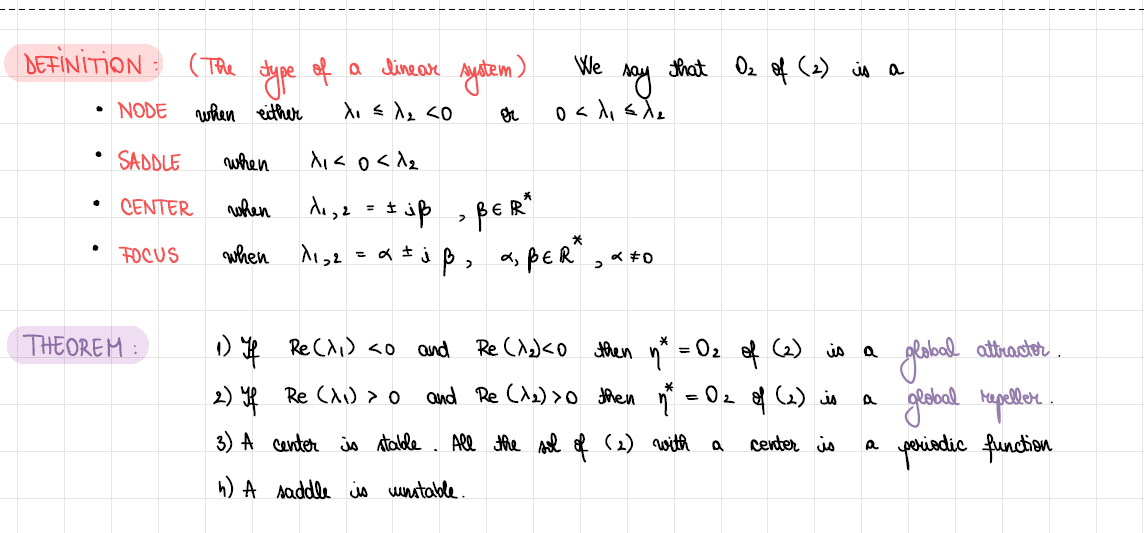 DEFINITION : (The type of a linear system) We say that O₂ of (2) is a
• NODE when either λ₁ ≤ λ₂ < 0 or 0 < λ₁ ≤ λ₂
• SADDLE when λ₁ < 0 < λ₂
• CENTER when λ₁,₂ = ± iβ , β ∈ ℝ*
• FOCUS when λ₁,₂ = α ± i β , α, β ∈ ℝ* , α ≠ 0
THEOREM : 1) If Re(λ₁) < 0 and Re(λ₂) < 0 then η* = O₂ of (2) is a global attractor .
2) If Re (λ₁) > 0 and Re (λ₂) > 0 then η* = O₂ of (2) is a global repeller .
3) A center is stable . All the sol of (2) with a center is a periodic function
4) A saddle is unstable.